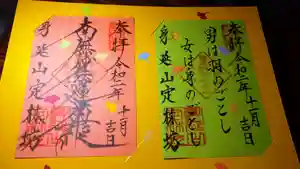 奉拝 令和二年十一月吉日
南無妙法蓮華経
身延山 定林坊
奉拝 令和二年十一月吉日
男は羽のごとし
女は身のごとし
身延山 定林坊